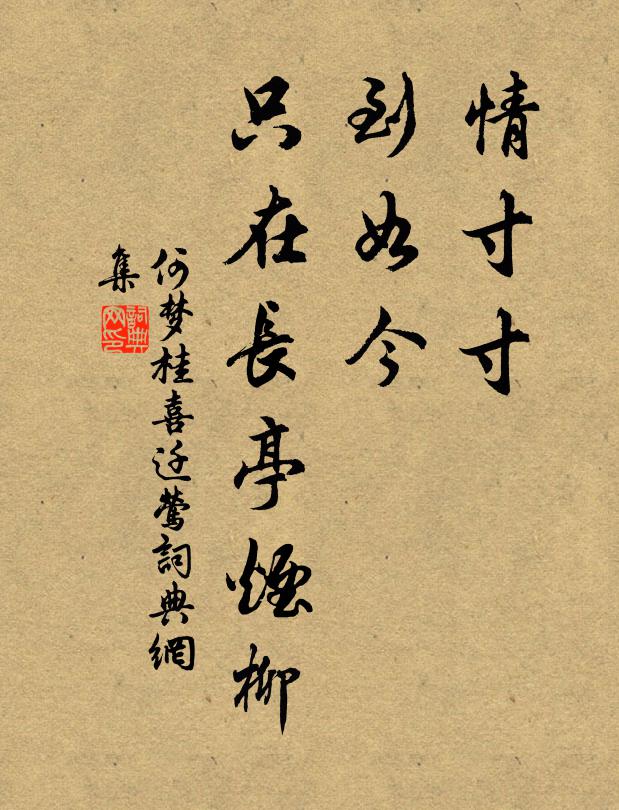 情寸寸
到如今
只在長亭煙柳
何梦桂喜迁莺詞典網
集
詞典网印